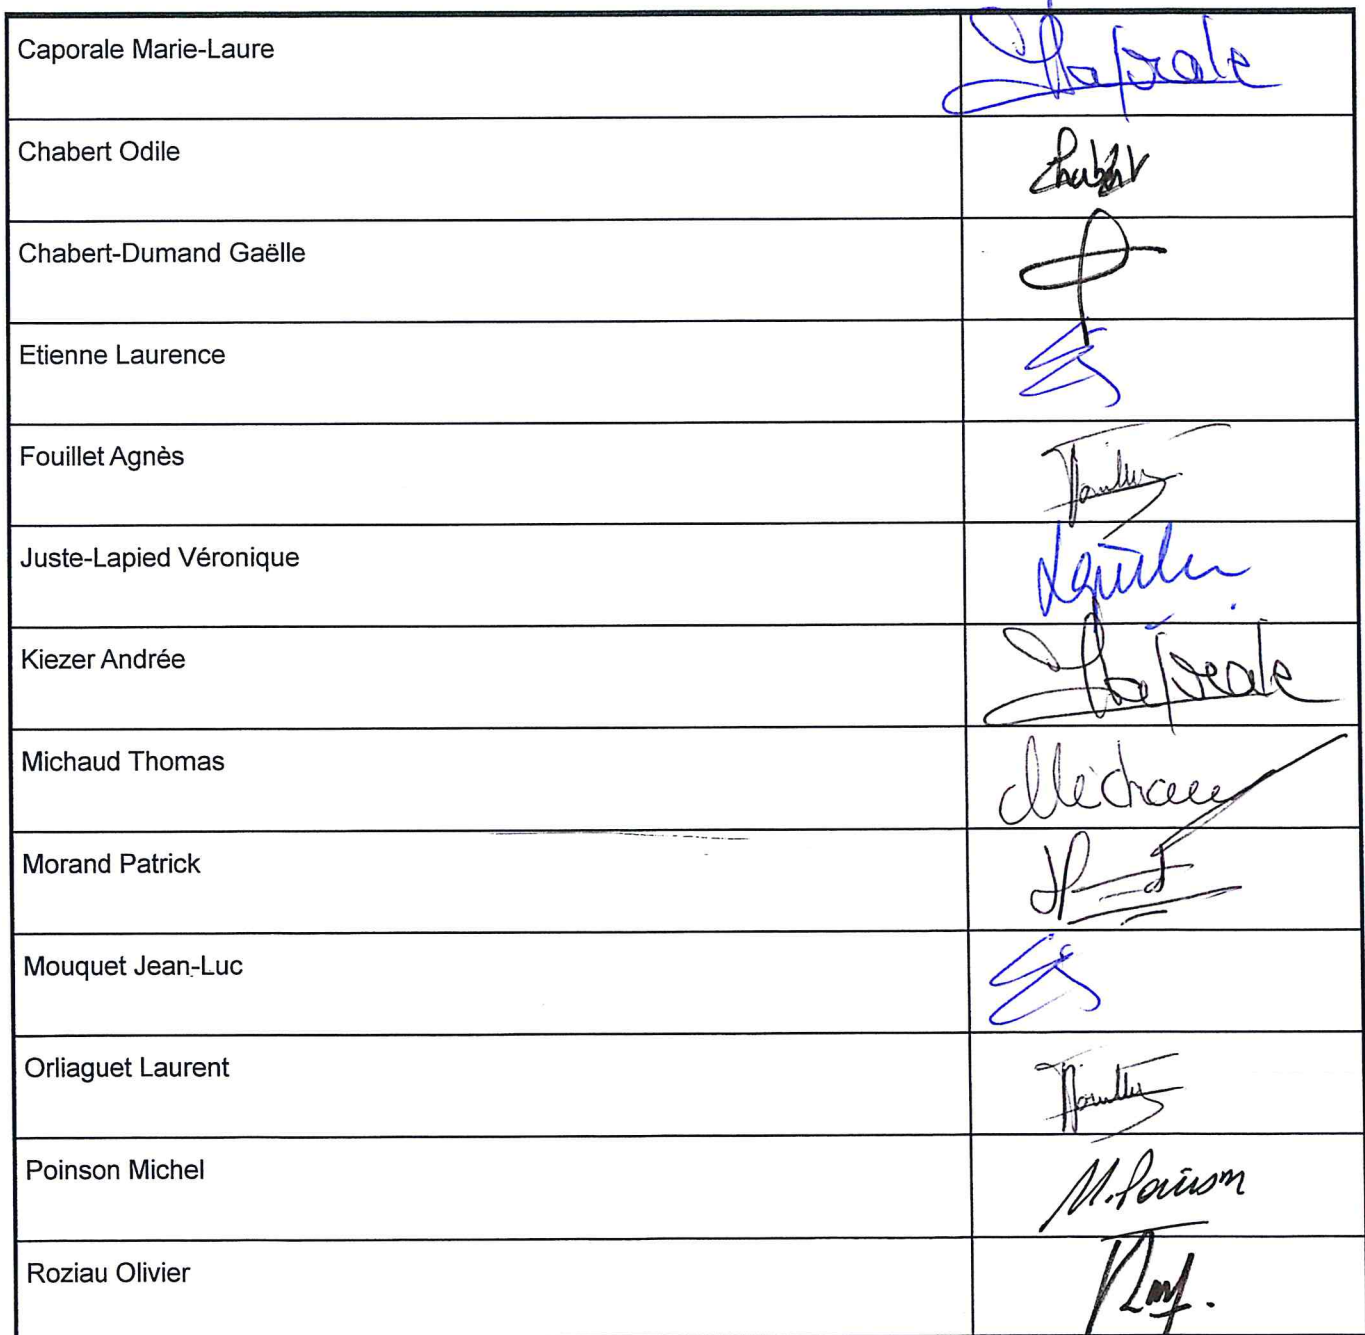 Caporale Marie-Laure
Chabert Odile
Chabert
Chabert-Dumand Gaëlle
Etienne Laurence
Fouillet Agnès
Juste-Lapied Véronique
Kiezer Andrée
Michaud Thomas
Morand Patrick
Mouquet Jean-Luc
Orliaguet Laurent
Poinson Michel
M. Poinson
Roziau Olivier